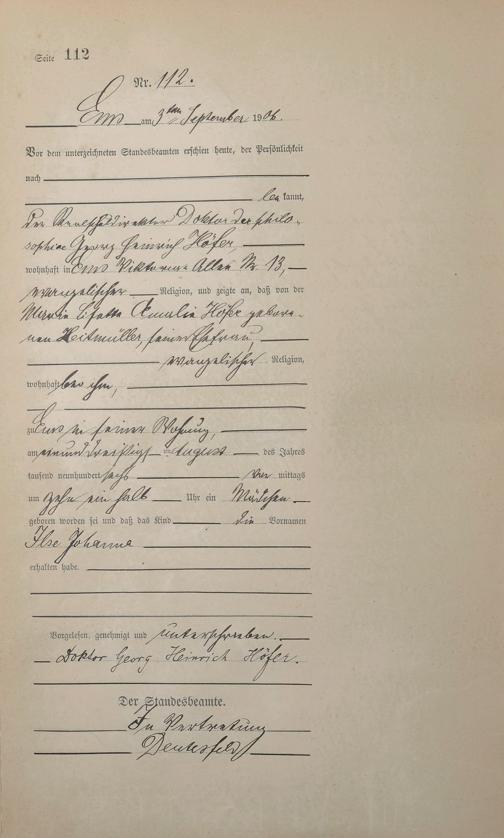 Seite 112
Nr. 112.
Ems am 3ten September 1906.
Vor dem unterzeichneten Standesbeamten erschien heute, der Persönlichkeit
nach
bekannt,
der Realschuldirektor Doktor der Philo-
sophie Georg Heinrich Höfer,
wohnhaft in Ems Viktoria Allee Nr 13,
evangelischer Religion, und zeigte an, daß von der
Marie Amalie Höfer gebore-
nen Heitmüller, seiner Ehefrau,
evangelischer Religion,
wohnhaft bei ihm,
zu Ems in seiner Wohnung,
am einunddreißigsten August des Jahres
tausend neunhundert sechs vor mittags
um zehn ein halb Uhr ein Mädchen
geboren worden sei und daß das Kind die Vornamen
Ilse Johanna
erhalten habe.
Vorgelesen, genehmigt und unterschrieben.
Doktor Georg Heinrich Höfer.
Der Standesbeamte.
In Vertretung